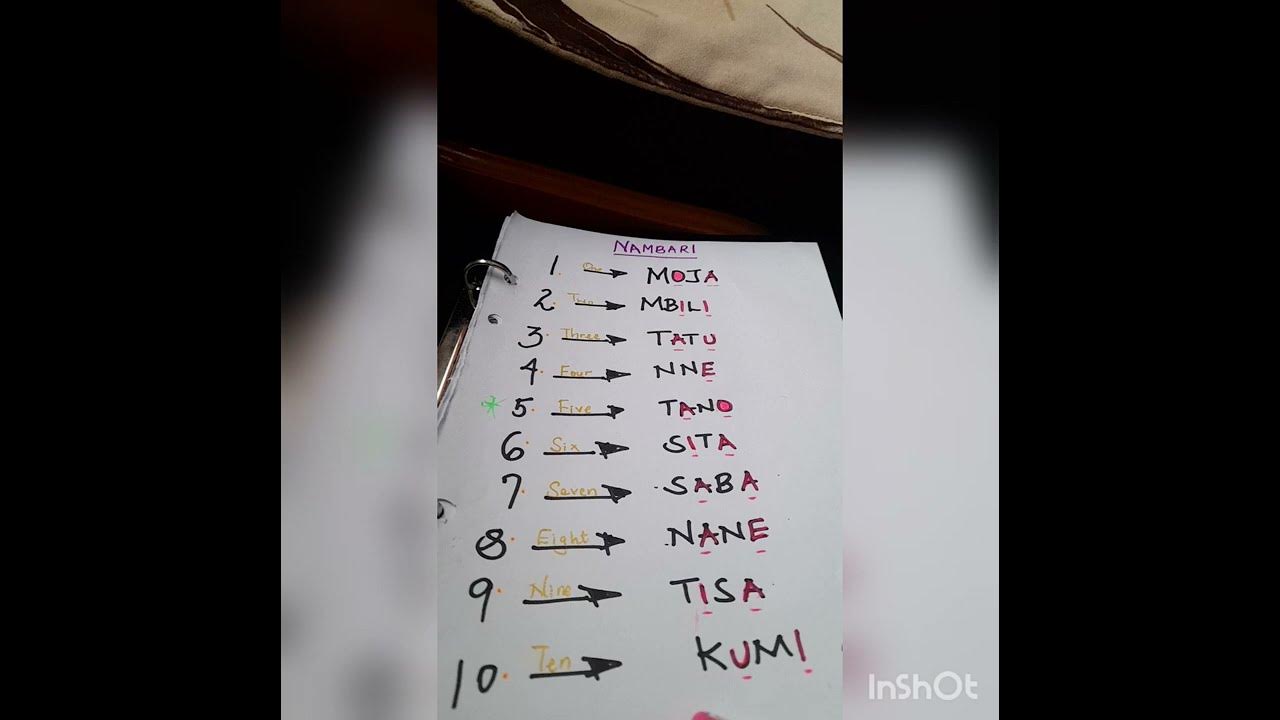 NAMBARI
1. One MOJA
2. Two MBILI
3. Three TATU
4. Four NNE
* 5. Five TANO
6. Six SITA
7. Seven SABA
8. Eight NANE
9. Nine TISA
10. Ten KUMI
InShOt